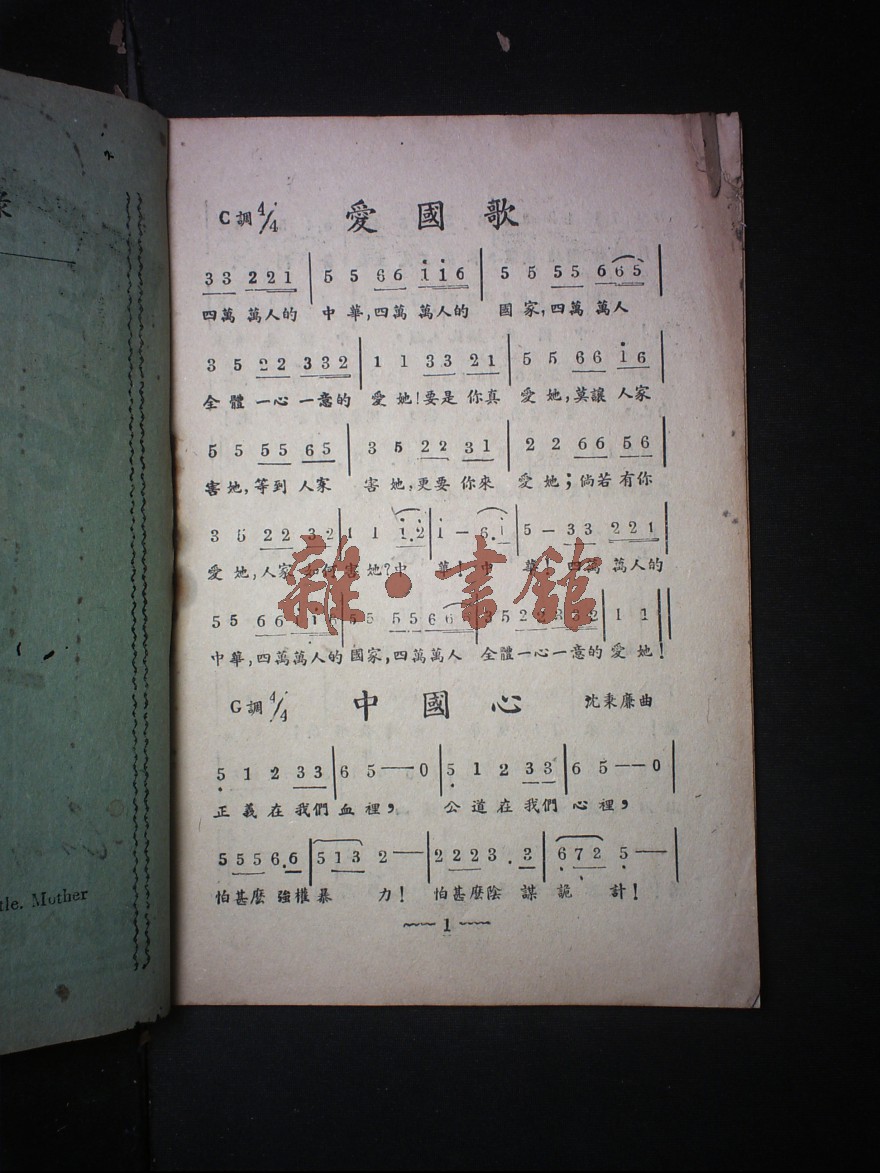 錄
tle. Mother
C調 4/4 愛國歌
33 221 | 5 5 66 116 | 5 5 55 665 |
四萬 萬人的 中 華,四萬 萬人的 國 家,四萬 萬人
3 5 22 332 | 1 1 33 21 | 5 5 66 16 |
全 體 一心 一意的 愛 她!要是 你真 愛 她,莫讓 人家
5 5 55 65 | 3 5 22 31 | 2 2 66 56
害 她,等到 人家 害 她,更要 你來 愛 她;倘若 有你
3 5 22 32 | 1 1 1.2 | 1 — 6.1 | 5 — 33 221 |
愛 她,人家 如何 害 她?中 華!中 華!四萬 萬人的
5 5 66 | 5 5 55 66 | 35 22 332 | 1 1 ||
中 華,四萬萬人的 國 家,四萬萬人 全體一心一意的 愛 她!
雜·書館
G調 4/4 中國心 沈秉廉曲
5 1 2 33 | 6 5——0 | 5 1 2 33 | 6 5——0 |
正 義 在 我們 血 裡, 公 道 在 我們 心 裡,
5 5 5 6.6 | 513 2 — | 2 2 2 3 . 3 | 672 5 — |
怕甚麼 強權 暴 力! 怕甚麼陰 謀 詭 計!
1